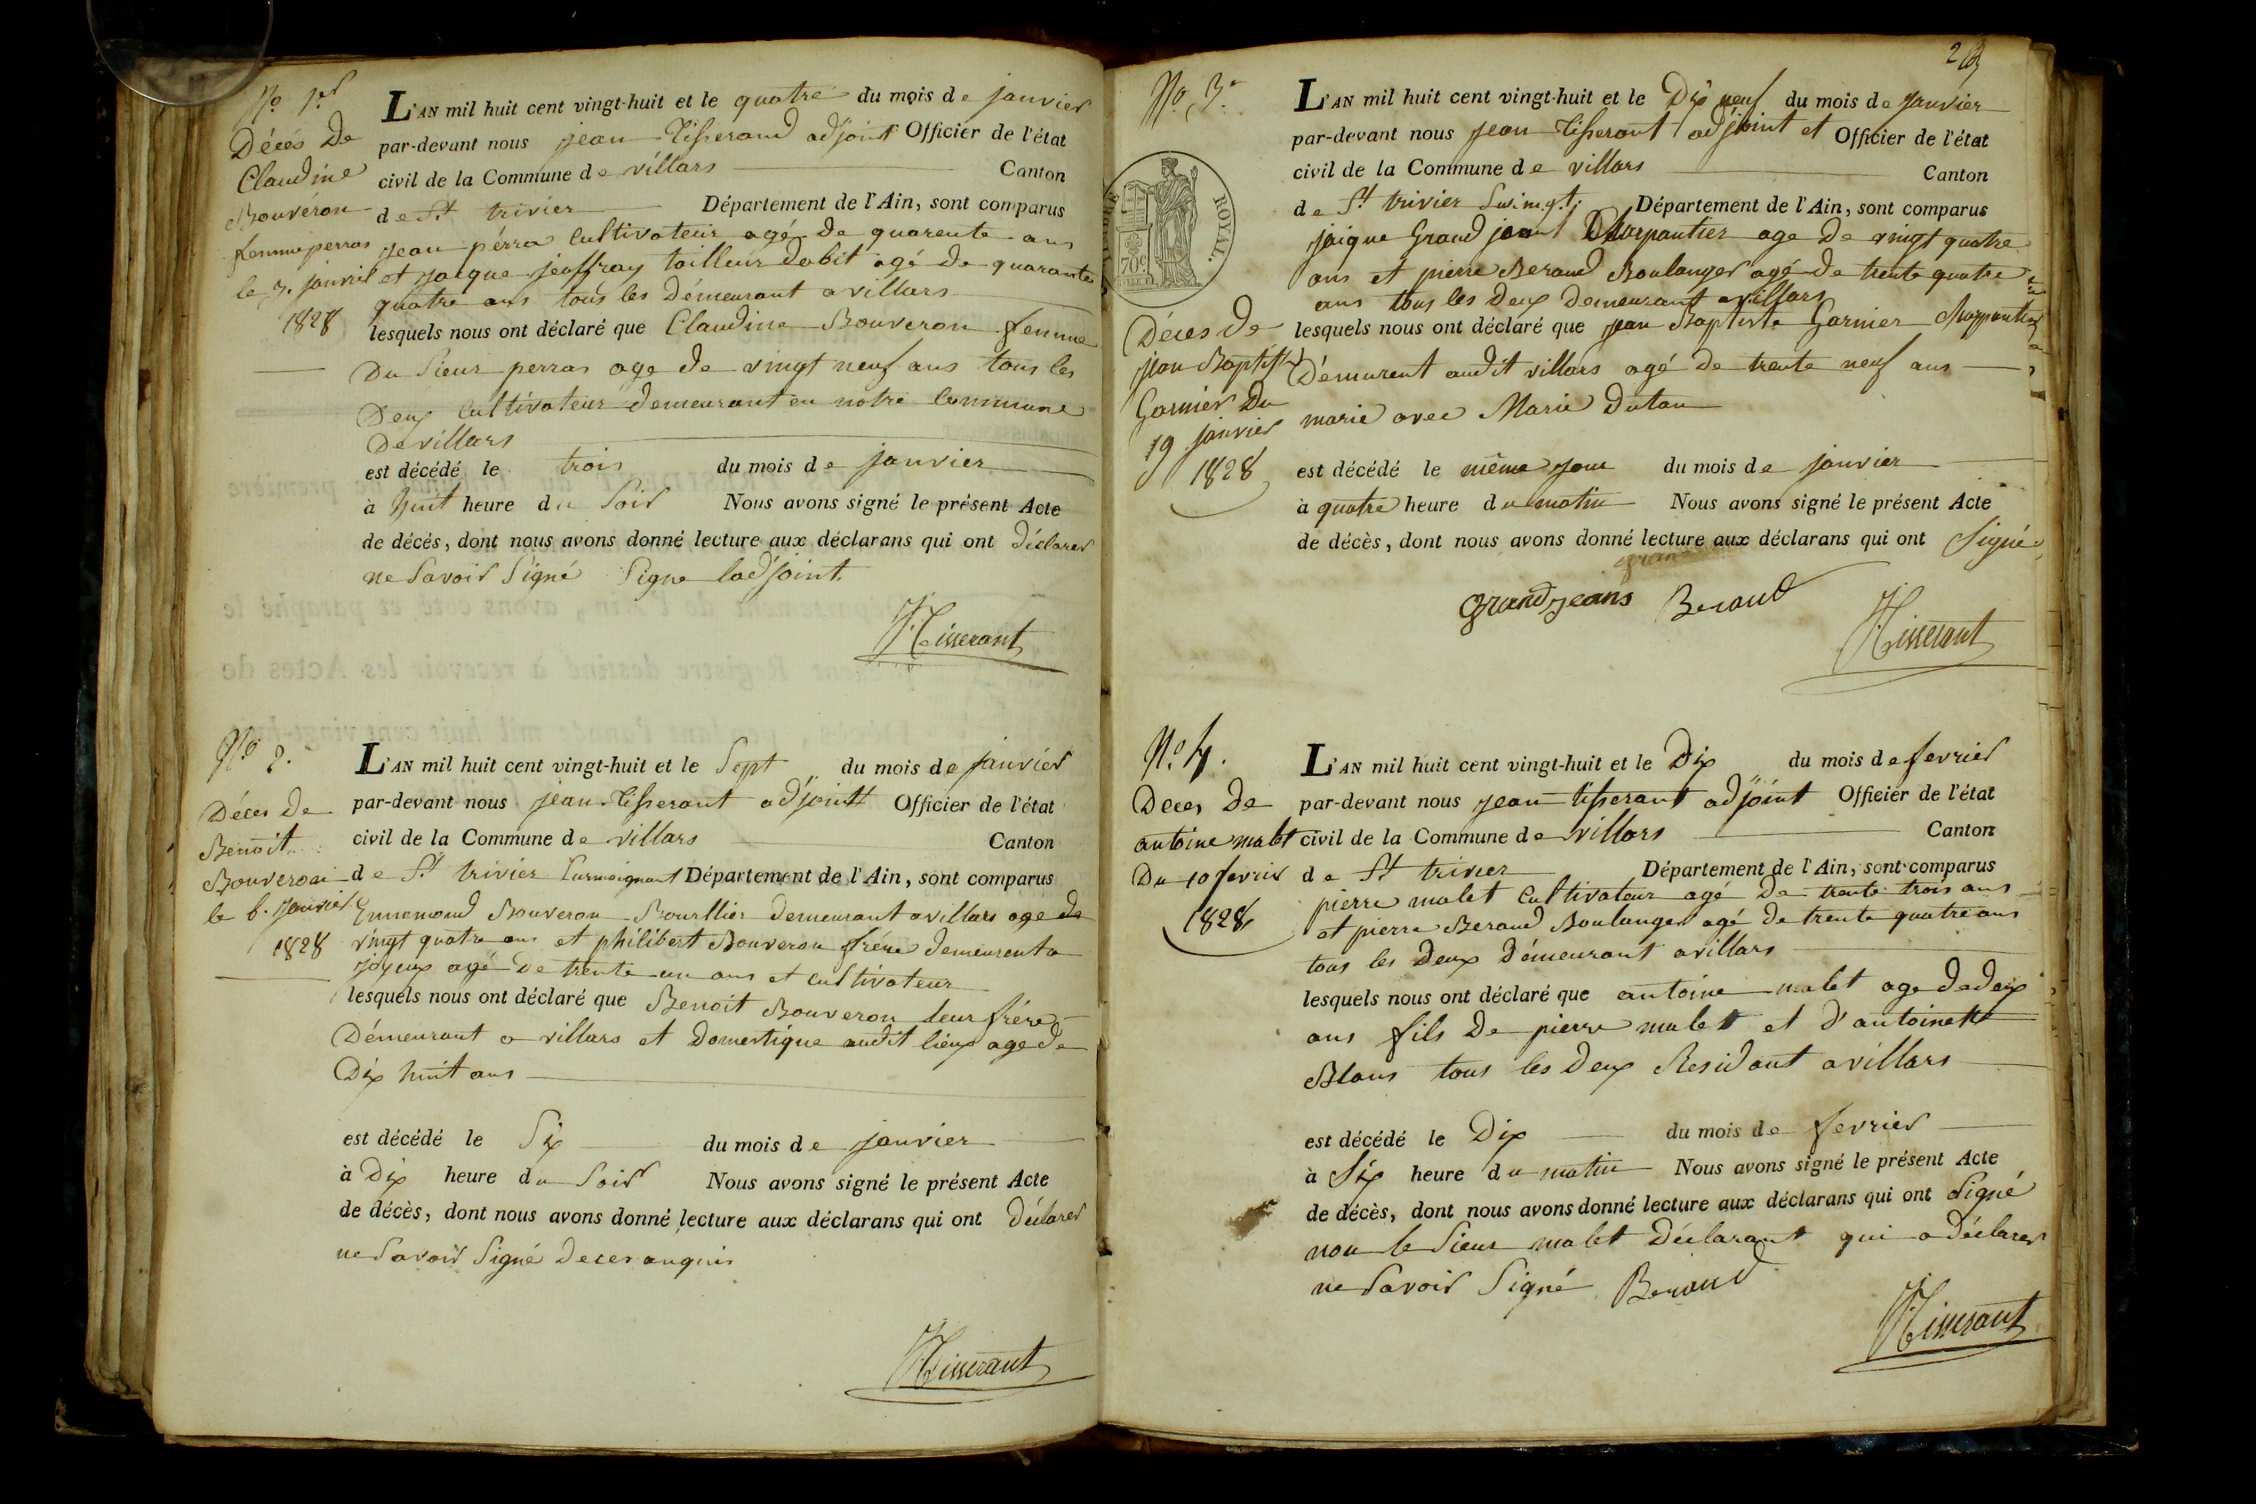 No 1er
Décés De
Claudine
Bouveron
femme perras
le 3. janvié
1828
L'AN mil huit cent vingt-huit et le quatre du mois de janvier
par-devant nous jean Tisserand adjoint Officier de l'état
civil de la Commune de villars Canton
de St trivier Département de l'Ain, sont comparus
jean perra Cultivateur agé de quarente ans
et jacque jeoffray tailleur dabit agé de quarante
quatre ans tous les démeurant a villars
lesquels nous ont déclaré que Claudine Bouveron femme
Du Sieur perras age de vingt neuf ans tous les
Deux Cultivateur demeurant en notre Commune
De villars
est décédé le trois du mois de janvier
à huit heure du Soir Nous avons signé le présent Acte
de décés, dont nous avons donné lecture aux déclarans qui ont déclarer
ne Savoir Signé Signe ladjoint
Tisserant
No 2.
Déces De
Benoit
Bouveron
le 6. janvier
1828
L'AN mil huit cent vingt-huit et le Sept du mois de janvier
par-devant nous jean Tisserant adjoint Officier de l'état
civil de la Commune de villars Canton
de St trivier Surmoignant Département de l'Ain, sont comparus
Ennemond Bouveron Bourllier demeurant a villars age de
vingt quatre ans et philibert Bouveron frére demeurent a
joyeux agé de trente un ans et cultivateur
lesquels nous ont déclaré que Benoit Bouveron leur frére
Démeurant a villars et Domestique audit lieux age de
Dix huit ans
est décédé le Six du mois de janvier
à Dix heure du Soir Nous avons signé le présent Acte
de décès, dont nous avons donné lecture aux déclarans qui ont Déclarer
ne Savoir Signé De ces anquis
Tisserant
2
No 3.
ROYAL.
70c
Déces de
jean Baptiste
Garnier Du
19 janvier
1828
L'AN mil huit cent vingt-huit et le Dix neuf du mois de janvier
par-devant nous jean Tisserant adjoint et Officier de l'état
civil de la Commune de villars Canton
de St trivier Département de l'Ain, sont comparus
jaique Grand jeant Charpantier age De vingt quatre
ans et pierre Beraud Boulanger agé de trente quatre
ans tous les Deux Demeurant a villars
lesquels nous ont déclaré que jean Baptiste Garnier Charpantier
Démurent audit villars agé De trente neuf ans
marie avec Marie Dutau
est décédé le même jour du mois de janvier
à quatre heure du matin Nous avons signé le présent Acte
de décès, dont nous avons donné lecture aux déclarans qui ont Signé
grandjeans Beraud
Tisserant
No 4.
Déces De
antoine malet
Du 10 fevrier
1828
L'AN mil huit cent vingt-huit et le Dix du mois de fevrier
par-devant nous jean tisserant adjoint Officier de l'état
civil de la Commune de villars Canton
de St trivier Département de l'Ain, sont comparus
pierre malet Cultivateur agé De trente trois ans
et pierre Beraud Boulanger agé De trente quatre ans
tous les Deux Démeurant a villars
lesquels nous ont déclaré que antoine malet age De deux
ans fils De pierre malet et d'antoinette
Blanc tous les Deux Residant a villars
est décédé le Dix du mois de fevrier
à Six heure du matin Nous avons signé le présent Acte
de décès, dont nous avons donné lecture aux déclarans qui ont Signé
non le Sieur malet Déclarant qui a déclarer
ne Savoir Signé Beraud
Tisserant